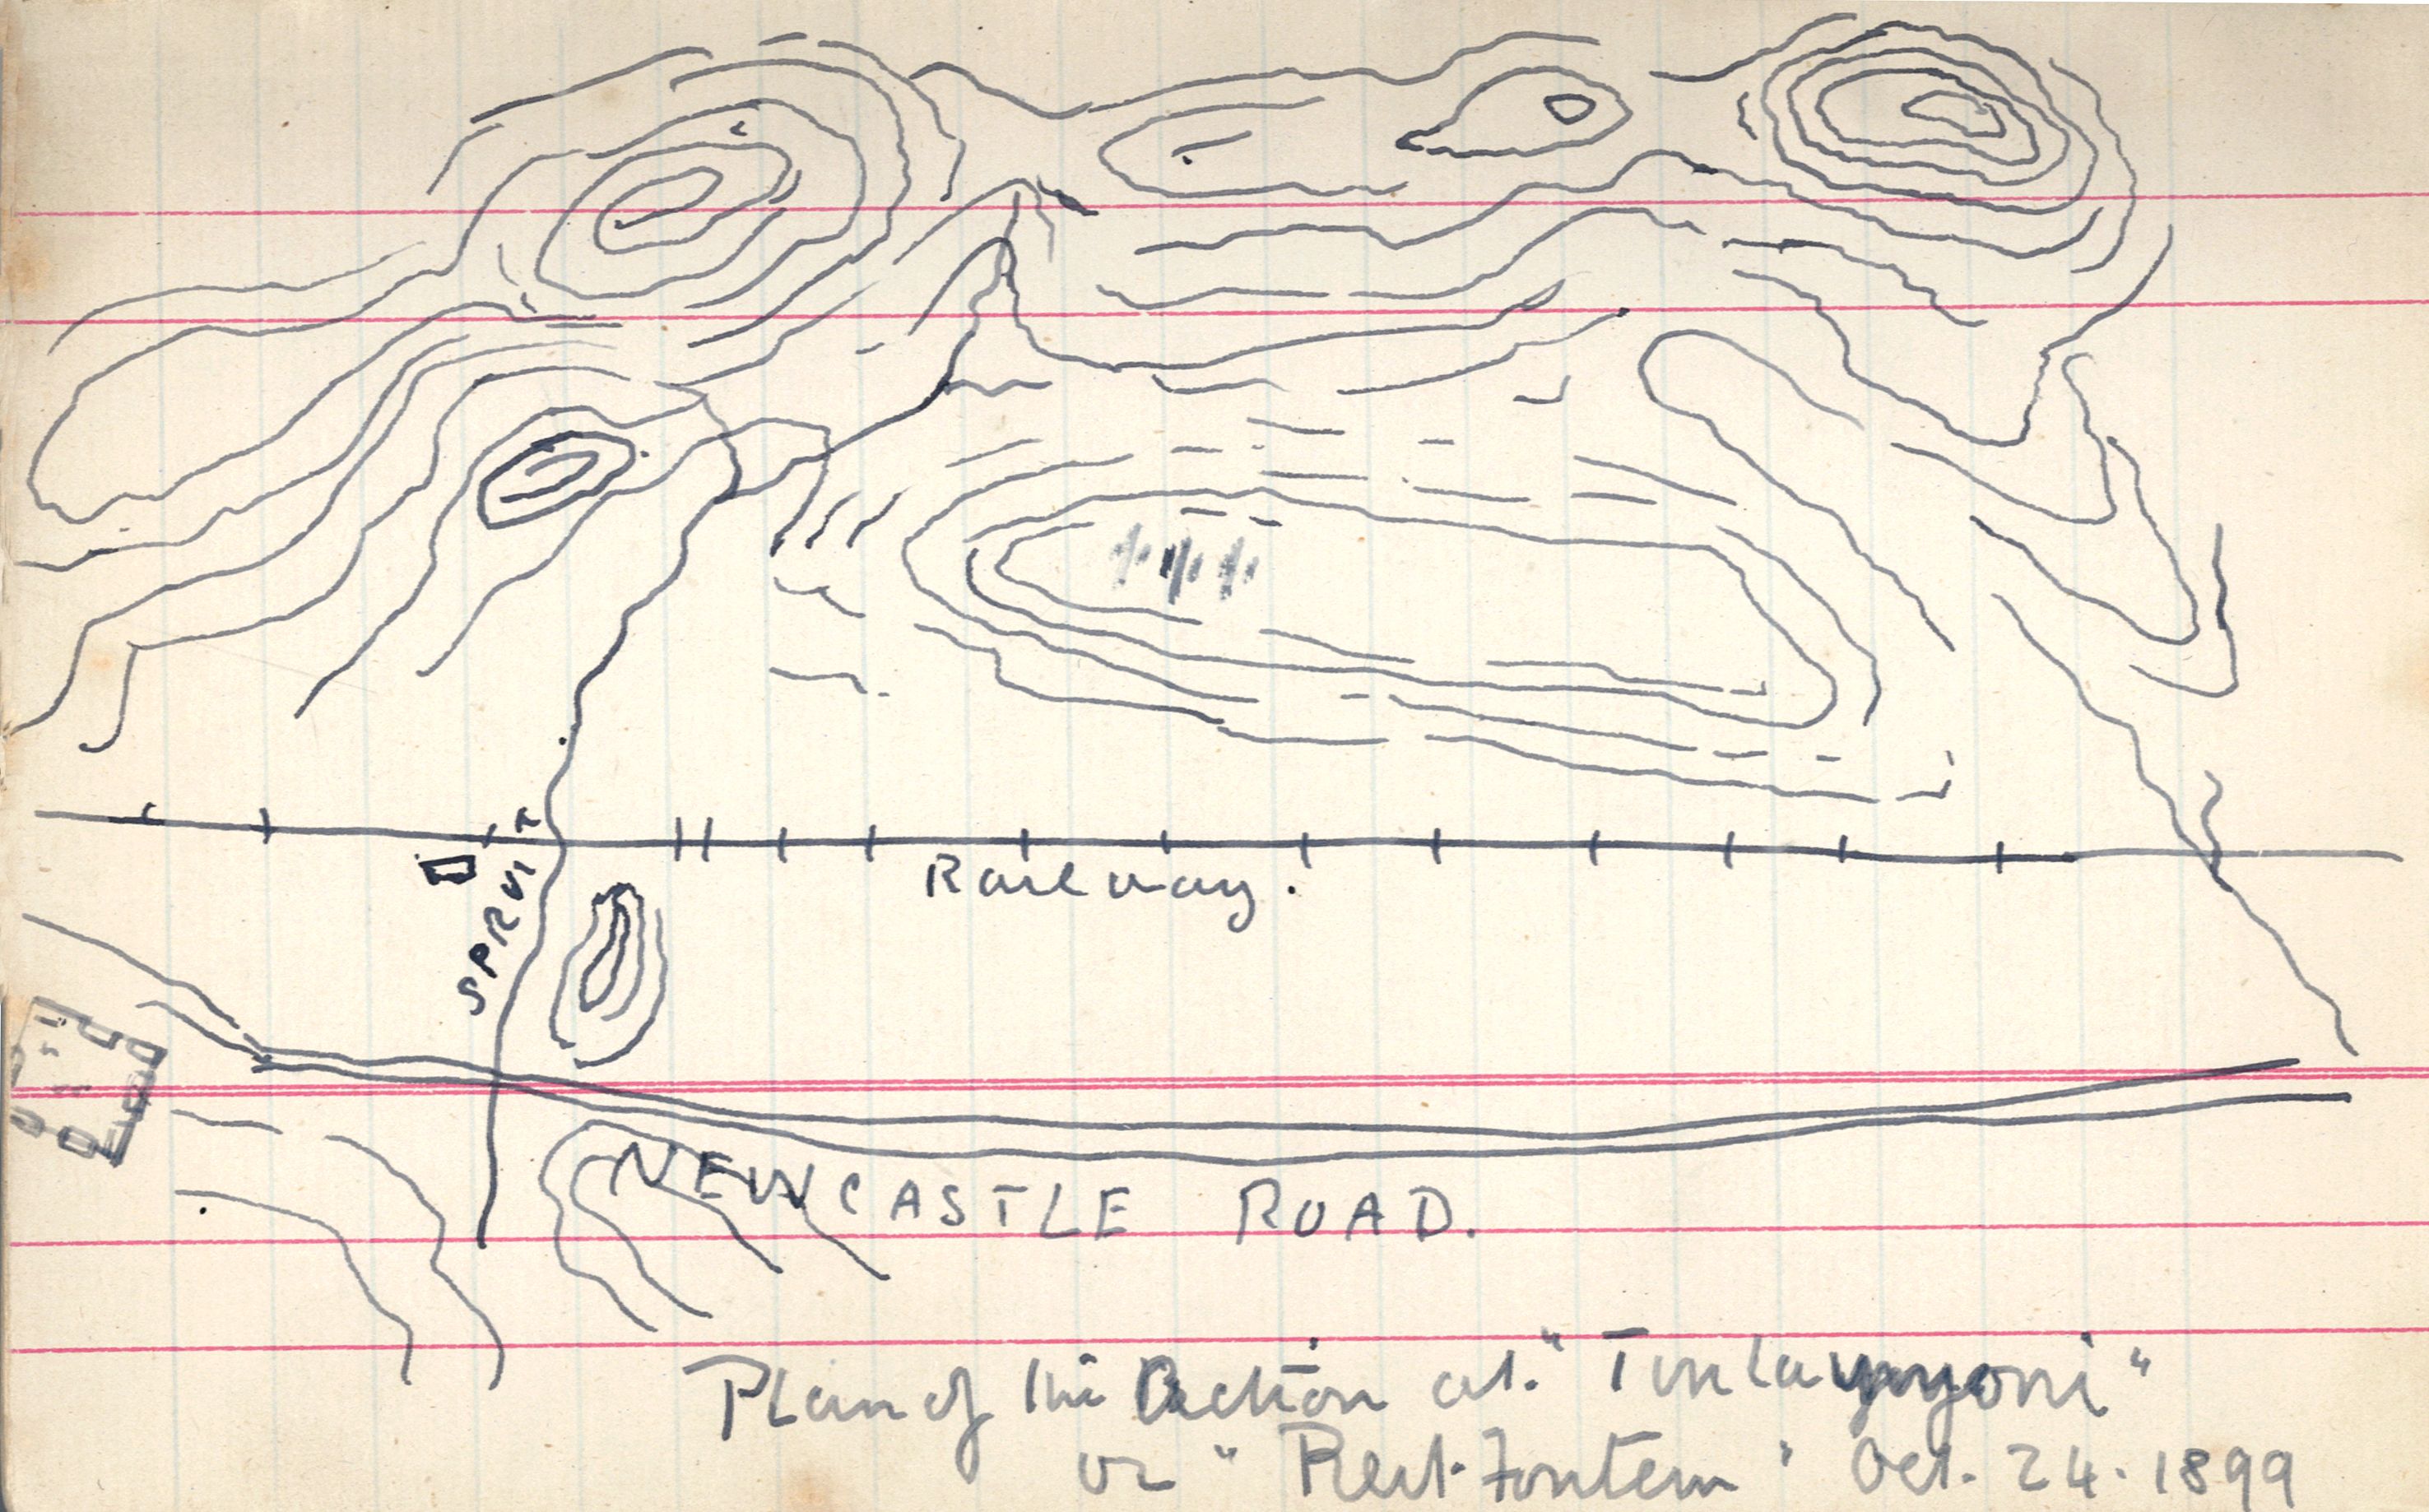 Railway.
SPRUIT
NEWCASTLE ROAD.
Plan of the Action at. "Tintanyoni"
or "Riet.Fontein" Oct. 24. 1899